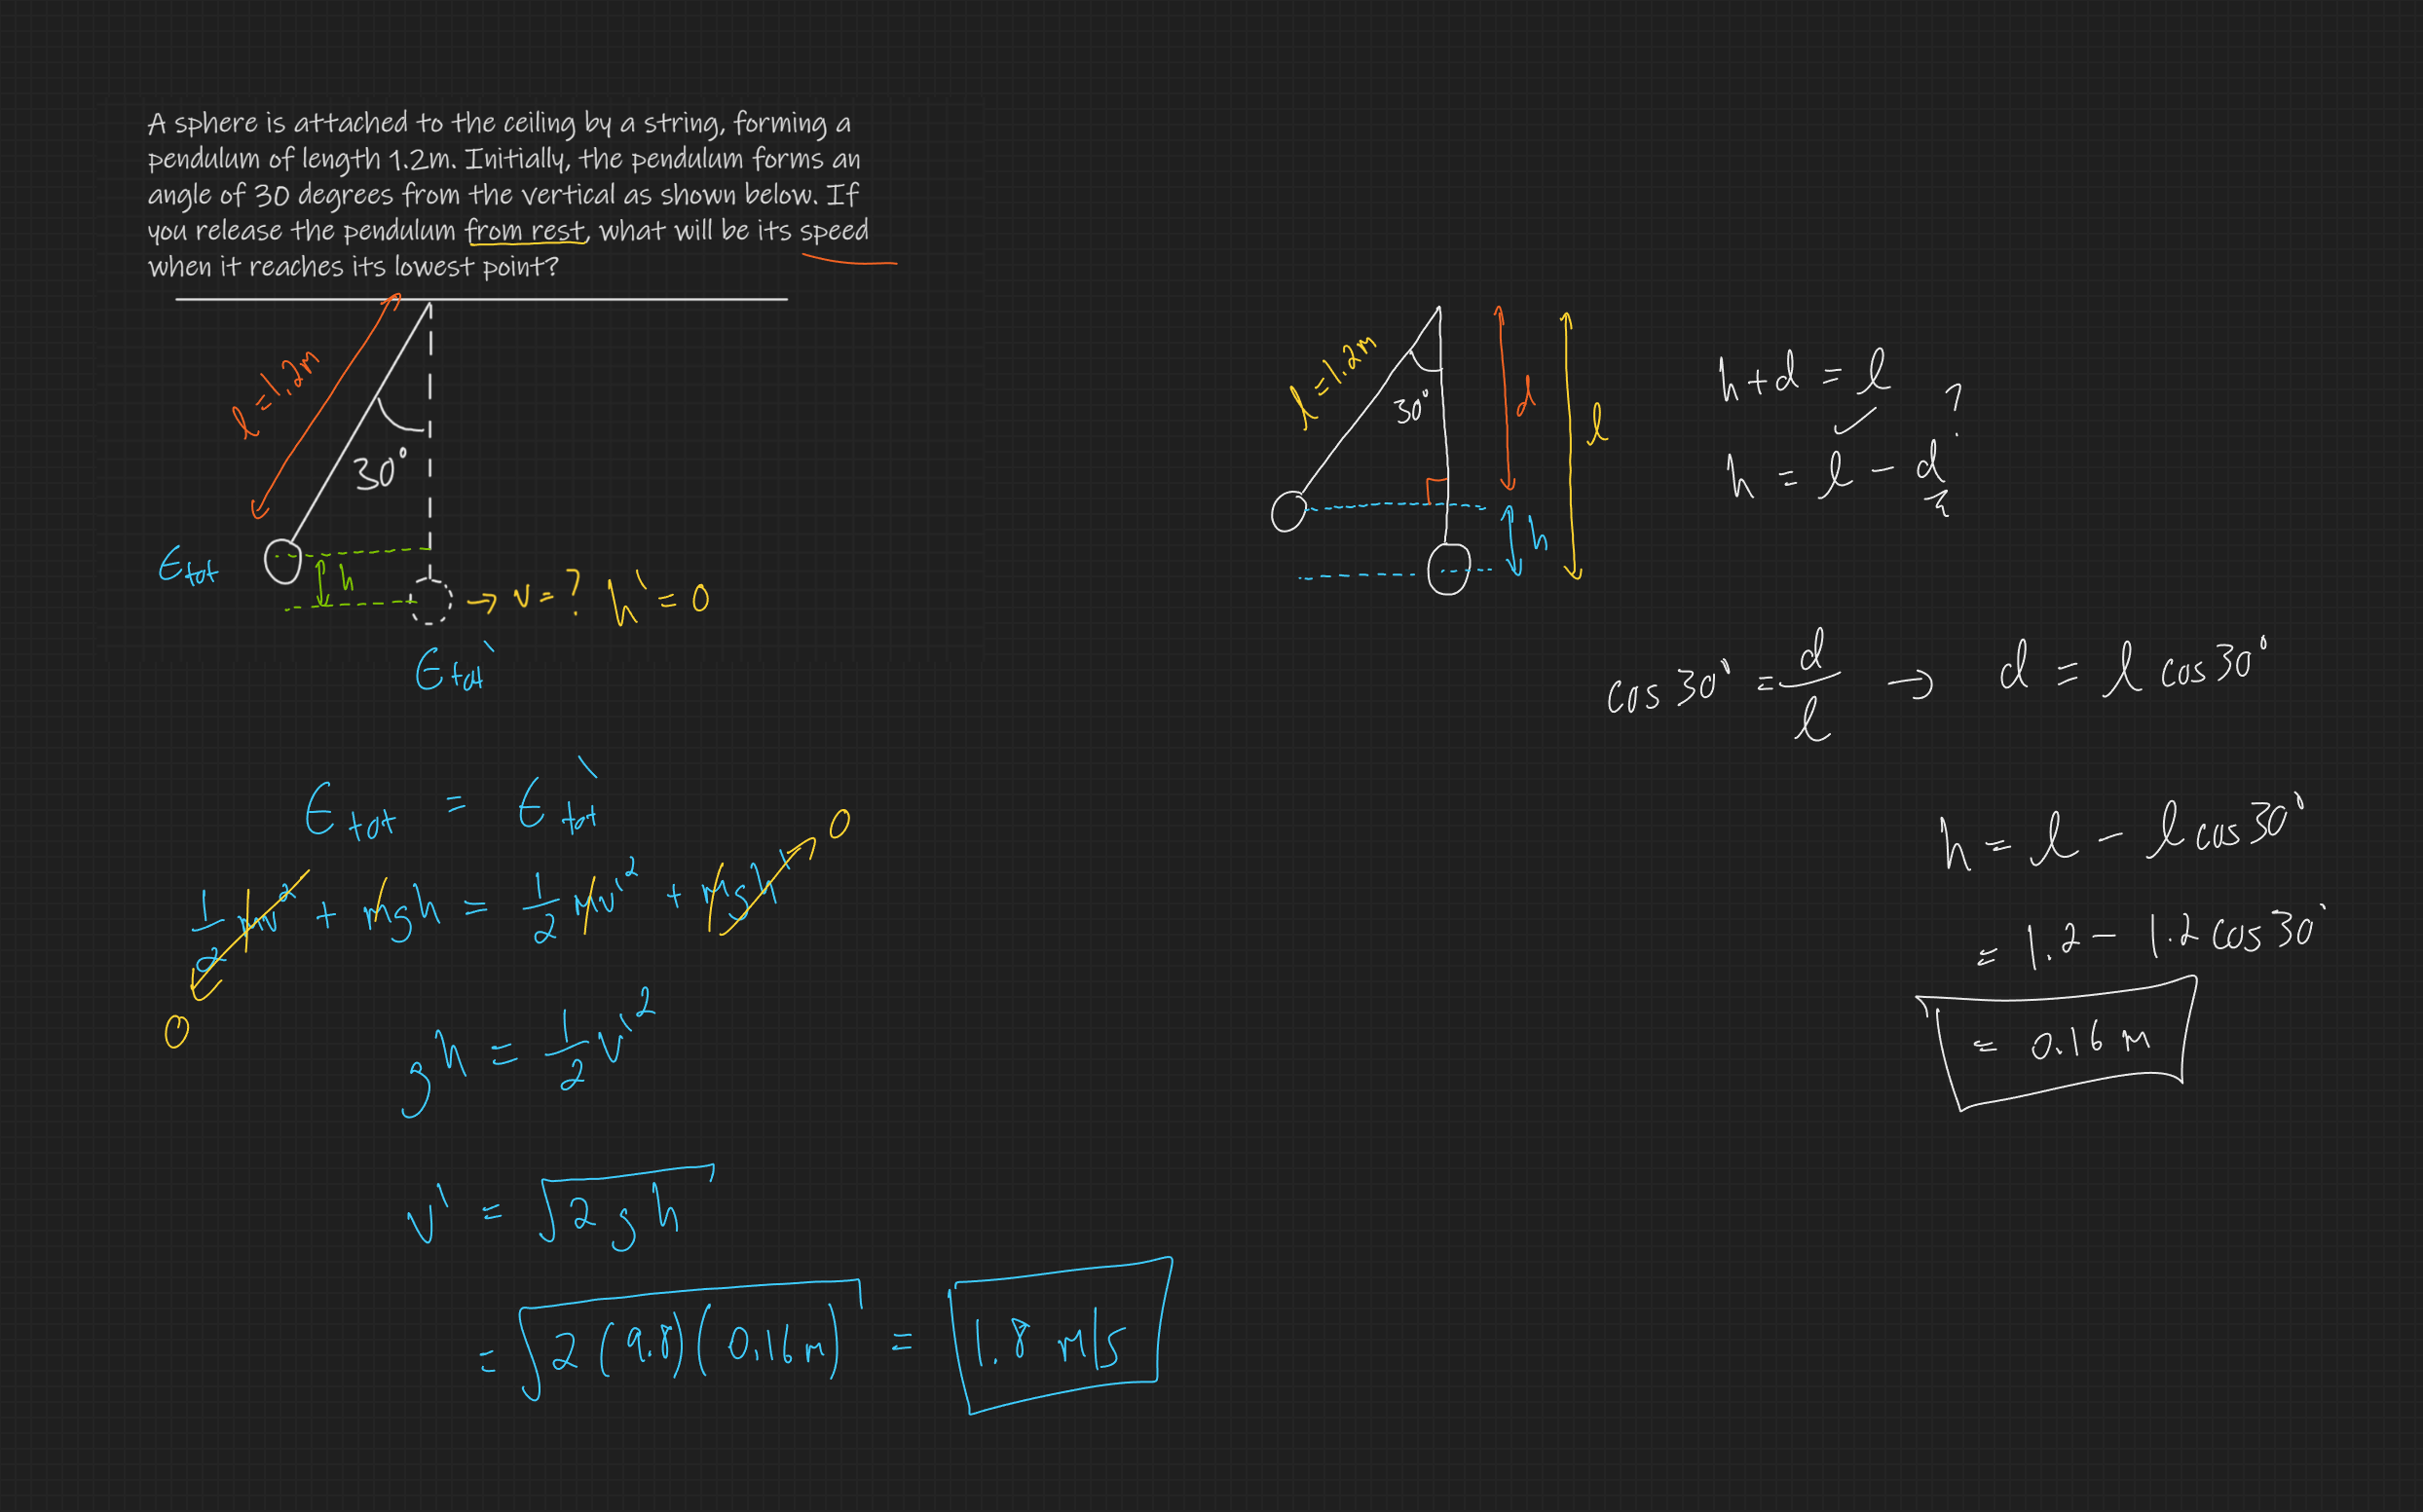 A sphere is attached to the ceiling by a string, forming a
pendulum of length 1.2m. Initially, the pendulum forms an
angle of 30 degrees from the vertical as shown below. If
you release the pendulum from rest, what will be its speed
when it reaches its lowest point?
l = 1.2m
30°
E_tot
h
→ v = ? h' = 0
E_tot'
E_tot = E_tot'
1/2 mv² + mgh = 1/2 mv'² + mgh'
0
0
gh = 1/2 v'²
v' = √2gh
= √2(9.8)(0.16m) = 1.8 m/s
l = 1.2m
30°
d
l
h
h + d = l
?
h = l - d
cos 30° = d/l → d = l cos 30°
h = l - l cos 30°
= 1.2 - 1.2 cos 30°
= 0.16 m